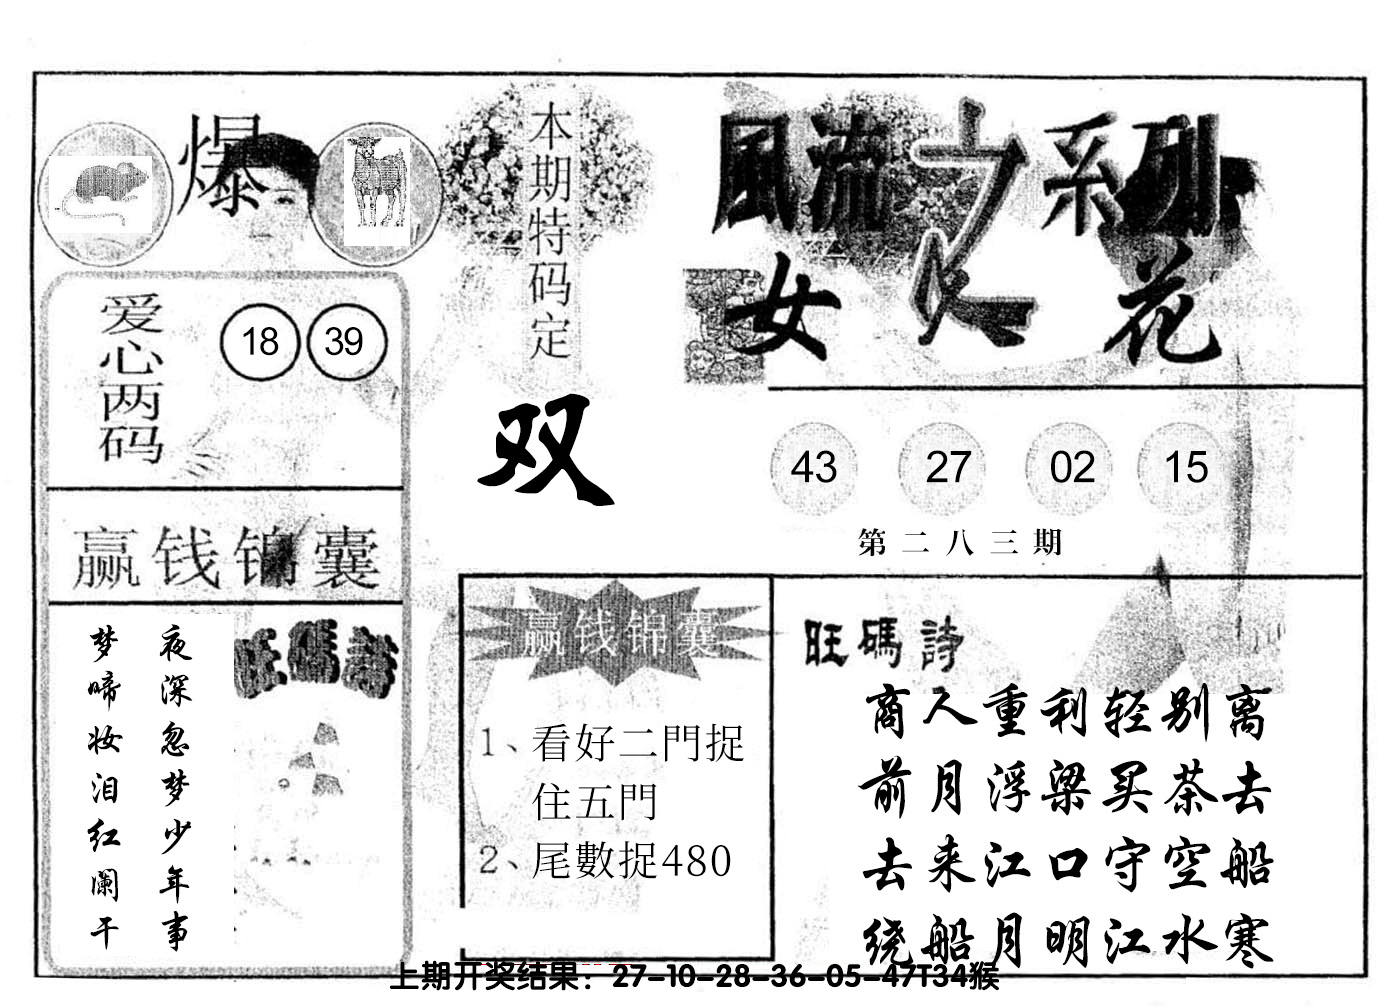 爆
爱心两码
18 39
赢钱锦囊
夜深忽梦少年事
梦啼妆泪红阑干
旺碼詩
本期特码定
双
風流之系列
女人花
43 27 02 15
第二八三期
赢钱锦囊
1、看好二門捉
住五門
2、尾數捉480
旺碼詩
商人重利轻别离
前月浮梁买茶去
去来江口守空船
绕船月明江水寒
上期开奖结果：27-10-28-36-05-47T34猴